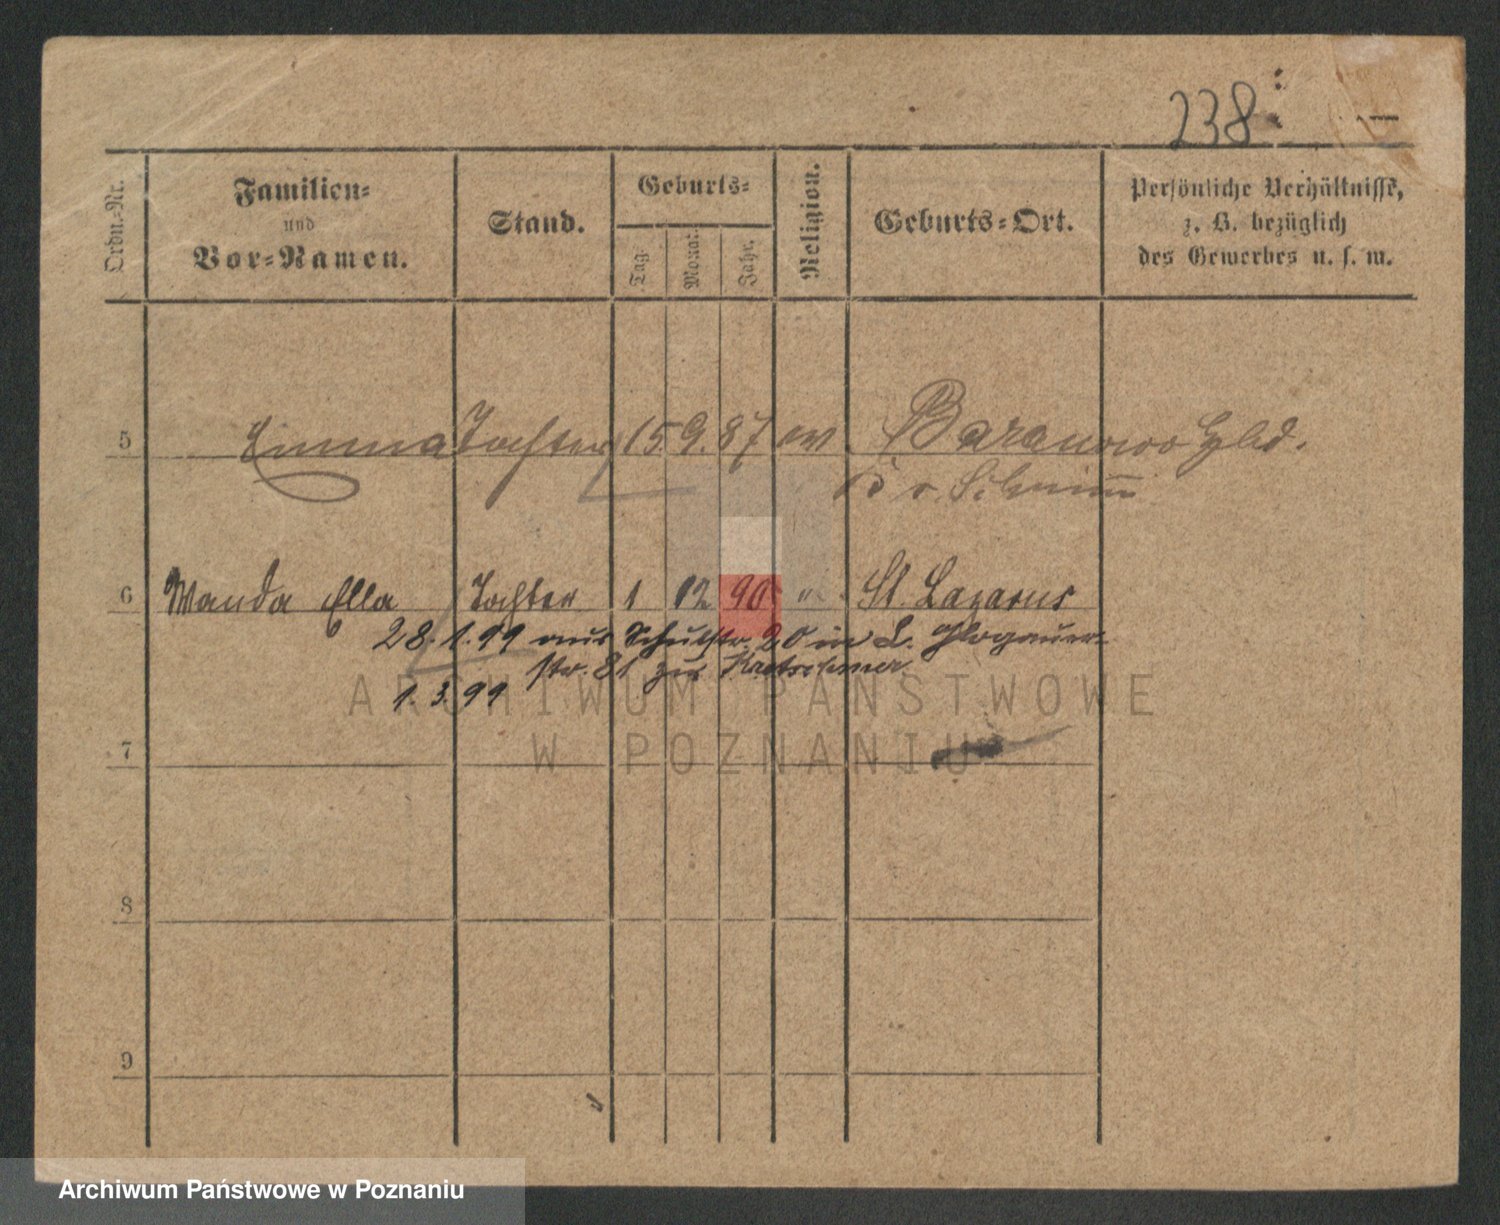 238
Ordn.-Nr.
Familien-
und
Vor-Namen.
Stand.
Geburts-
Tag.
Monat.
Jahr.
Religion.
Geburts-Ort.
Persönliche Verhältnisse,
z. B. bezüglich
des Gewerbes u. s. w.
5 Emma Tochter 15. 9. 87 ev. Baranowo
Schrimm
6 Wanda Ella Tochter 1 12 90 " St. Lazarus
28. 1. 99 aus Schulstr. 20 in L. Glogauer-
str. 81 zu
1. 3. 99
7
8
9
ARCHIWUM PAŃSTWOWE
W POZNANIU
Archiwum Państwowe w Poznaniu